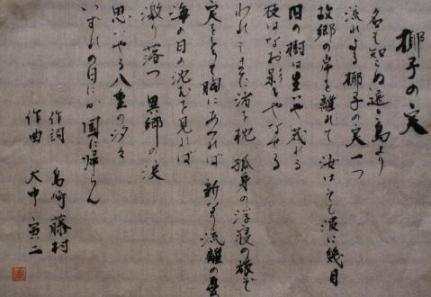 椰子の実
名も知らぬ遠き島より
流れよる椰子の実一つ
故郷の岸を離れて 汝はそも波に幾月
旧の樹は生いや茂れる
枝はなお影をやなせる
われもまた渚を枕 孤身の浮寝の旅ぞ
実をとりて胸にあつれば 新なり流離の憂
海の日の沈むを見れば
激り落つ 異郷の涙
思いやる八重の汐々
いずれの日にか国に帰らん
作詞 島崎藤村
作曲 大中寅二